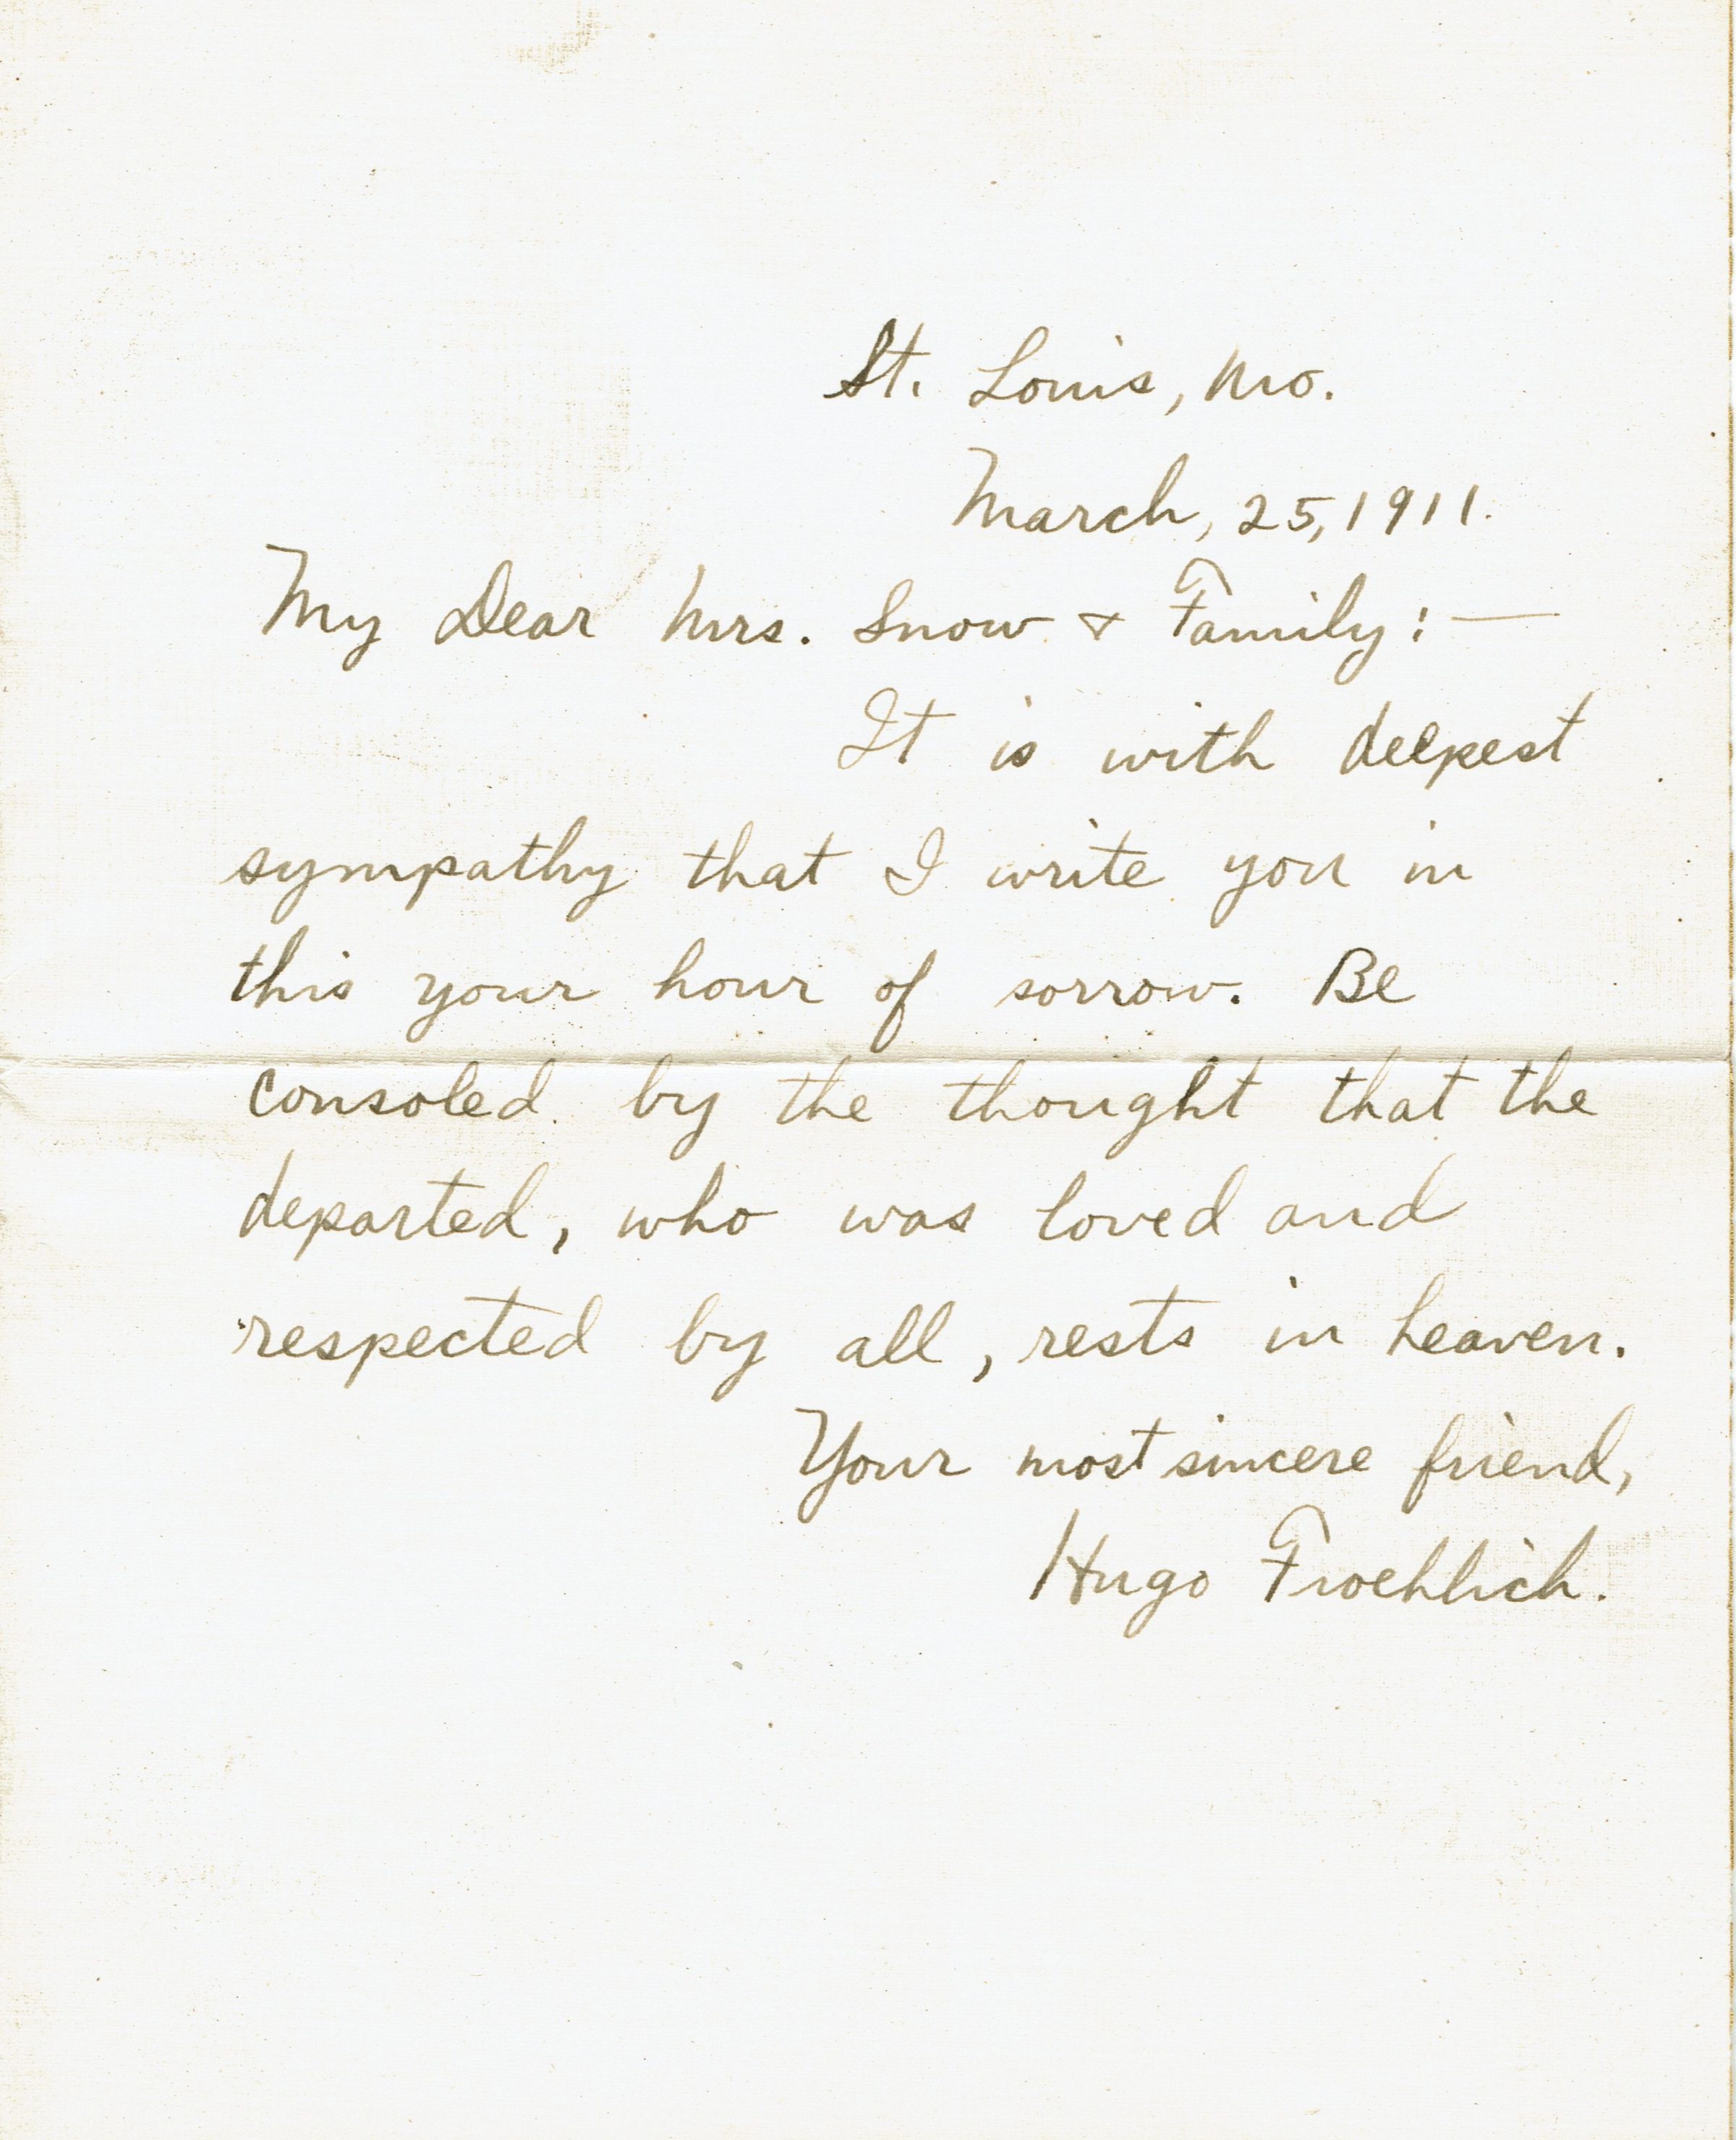 St. Louis, Mo.
March, 25, 1911.
My Dear Mrs. Snow & Family:—
It is with deepest
sympathy that I write you in
this your hour of sorrow. Be
consoled by the thought that the
departed, who was loved and
respected by all, rests in heaven.
Your most sincere friend,
Hugo Froehlich.